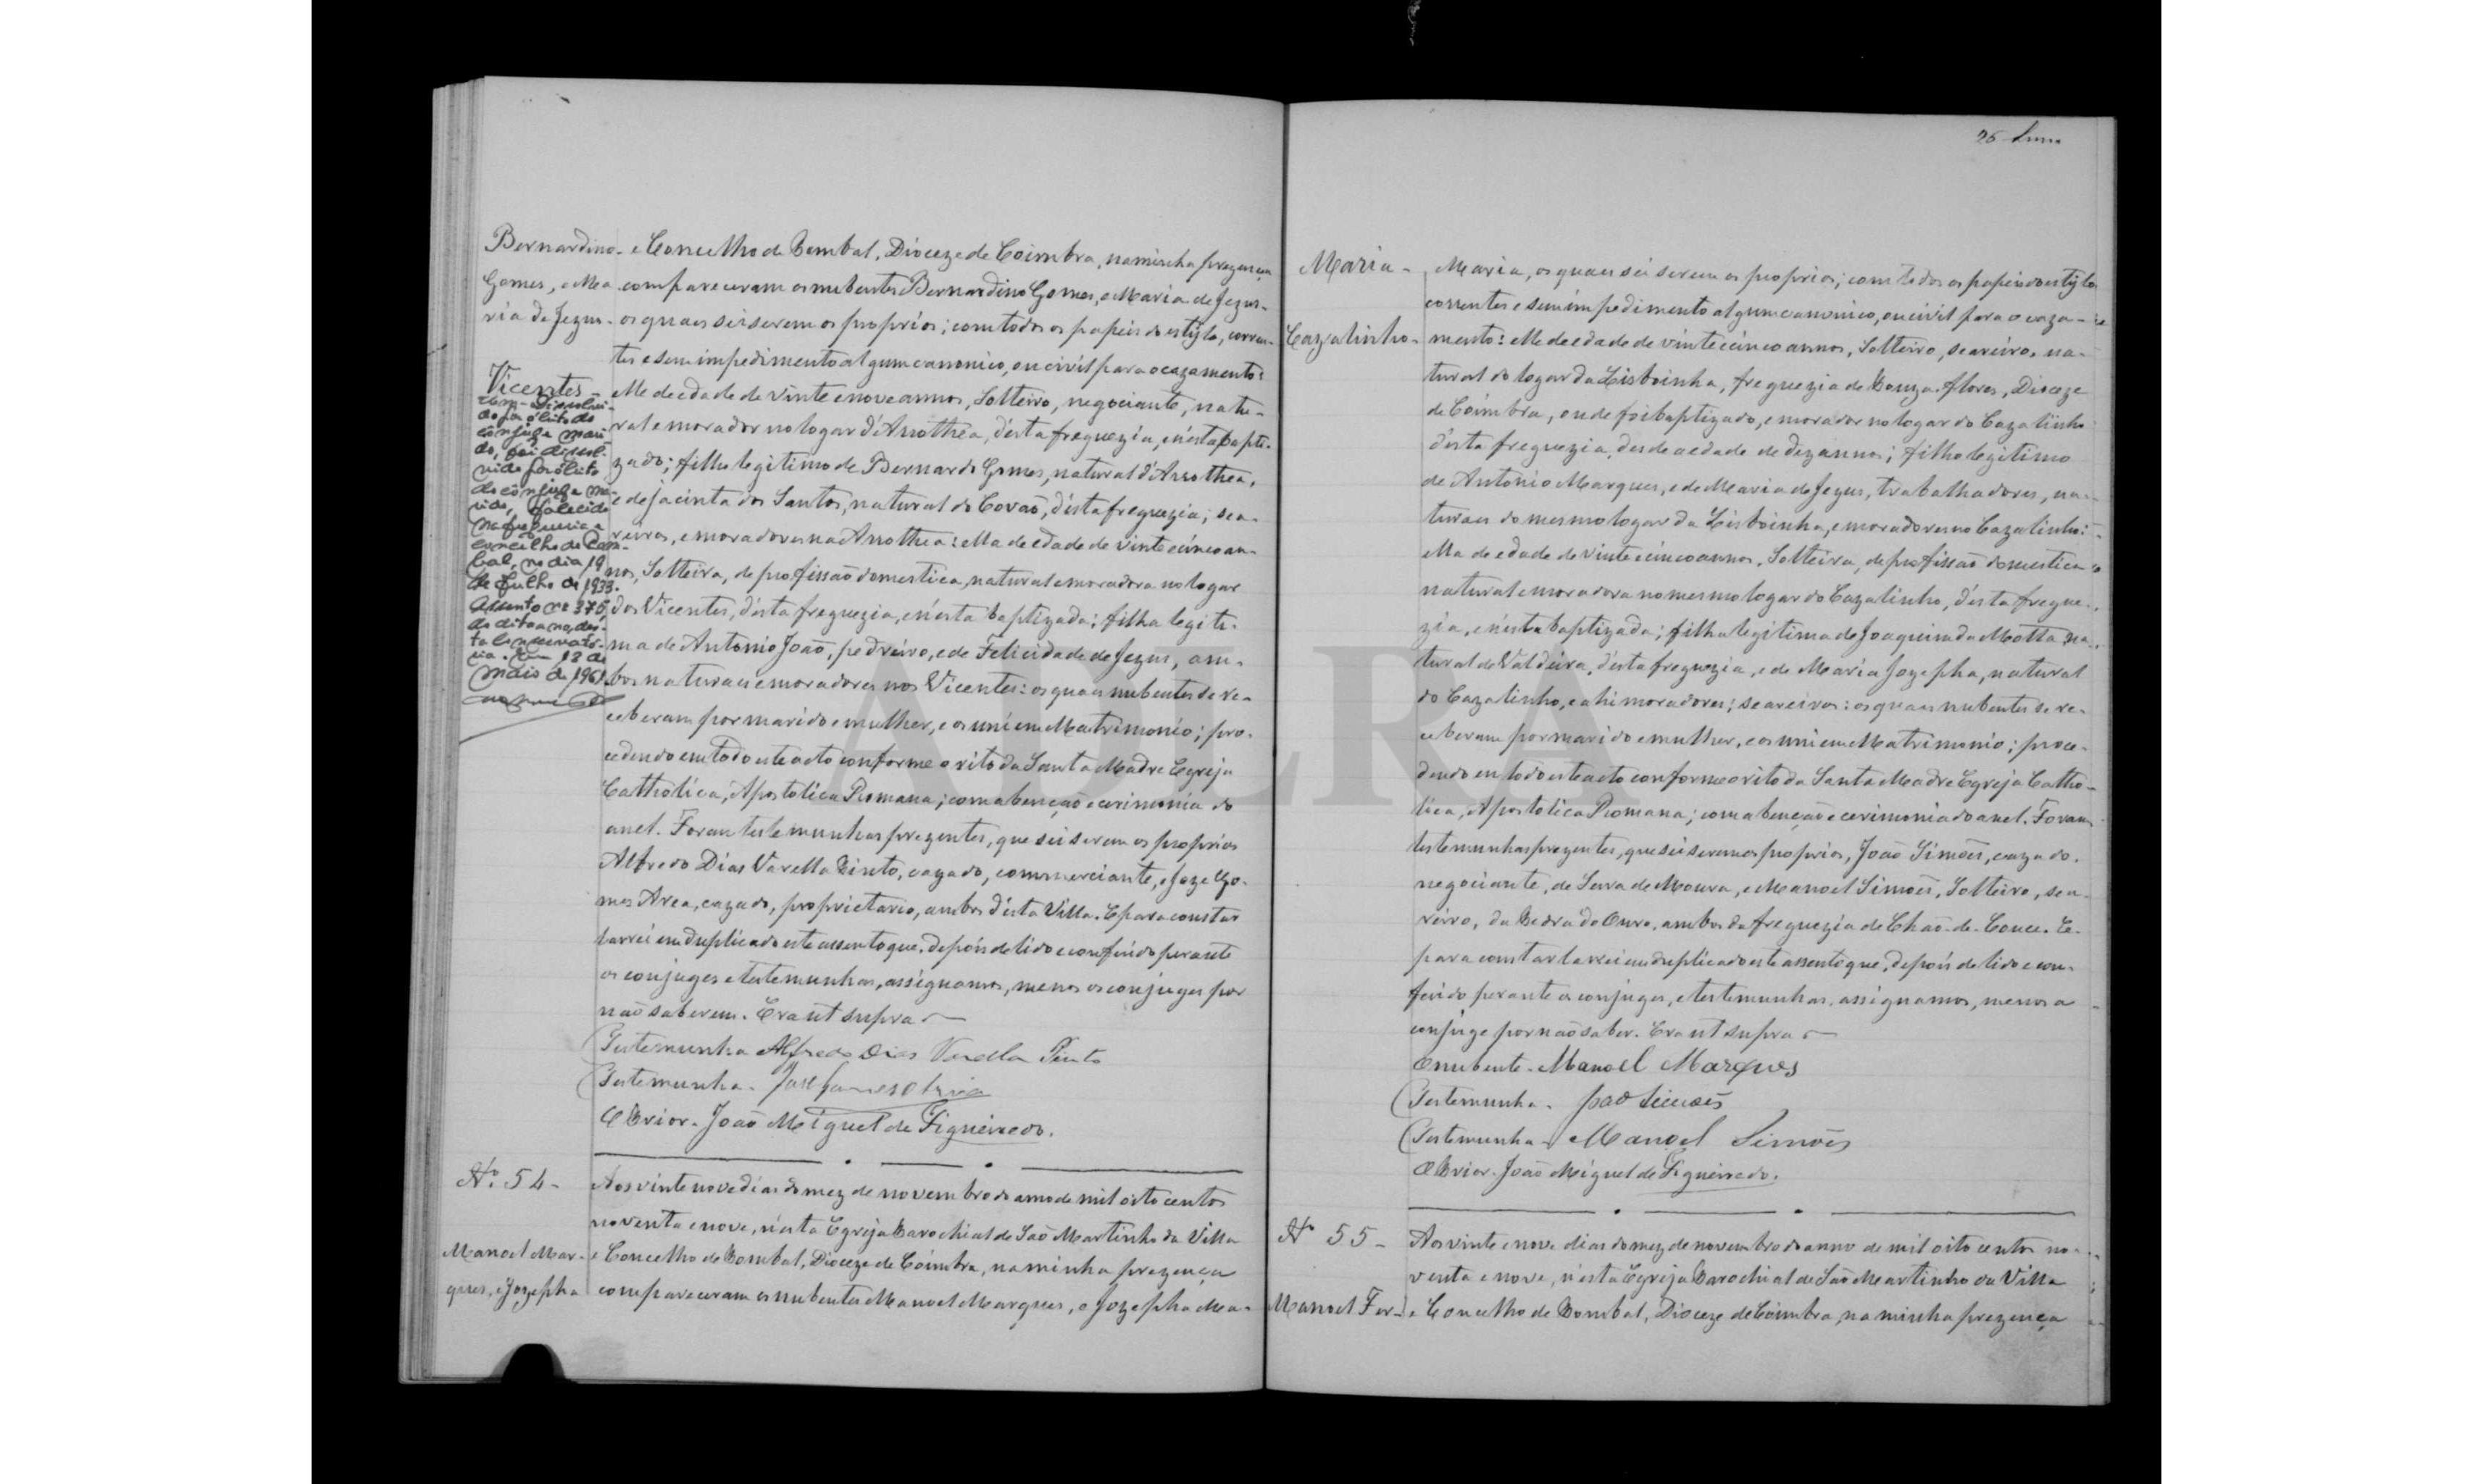 Bernardino
Gomes, e Ma
ria de Jezus
Vicentes
do por óbito do
cônjuge mari
do, foi dissol
vido por óbito
do cônjuge ma
rido, falecido
na freguesia e
concelho de Pom
bal, no dia 19
de Julho de 1933.
Assento nº 375,
do dito ano, des
ta Conservató
ria. Em 18 de
Maio de 1961.
e Concelho de Pombal, Dioceze de Coimbra, na minha prezença
compareceram os nubentes Bernardino Gomes, e Maria de Jezus-
os quaes sei serem os proprios; com todos os papeis do estÿlo, corren-
tes e sem impedimento algum canonico, ou civil para o cazamento:
elle de edade de vinte e nove annos, Solteiro, negociante, natu-
ral e morador no logar d'Arrothêa, d'esta freguezia, e n'ésta bapti-
zado; filho legitimo de Bernardo Gomes, natural d'Arrothea,
e de jacinta dos Santos, natural do Covaõ, d'ésta freguezia; sea-
reiros, e moradores na Arrothea: ella de edade de vinte e cinco an-
nos, Solteira, de profissão domestica, natural e moradora no logar
dos Vicentes, d'ésta freguezia, e n'esta baptizada; filha legiti-
ma de Antonio Joaõ, pedreiro, e de Felicidade de Jezus, am-
bos naturaes e moradores nos Vicentes: os quaes nubentes se re-
ceberam por marido e mulher, e os uni em Matrimonio; pro-
cedendo em todo este acto conforme o rito da Santa Madre Egreja
Catholica, Apostolica Romana; com a bençaõ e cerimonia do
anel. Foram testemunhas prezentes, que sei serem os proprios
Alfredo Dias Varella Pinto, cazado, commerciante, e Joze Go-
mes Area, cazado, proprietario, ambos d'ésta Villa. E para constar
lavrei em duplicado este assento que, depóis de lido e conferido perante
os conjuges e testemunhas, assignamos, menos os conjuges por
naõ saberem. Era ut supra
Testemunha Alfredo Dias Varella Pinto
Testemunha.
O Prior. Joaõ Miguel de Figueiredo.
Nº. 54-
Manoel Mar-
ques, e Jozepha
Aos vinte nove dias do mez de novembro do anno de mil oito centos
noventa e nove, n'ésta Egreja Parochial de Saõ Martinho da Villa
e Concelho de Pombal, Dioceze de Coimbra, na minha prezença
compareceram os nubentes Manoel Marques, e Jozepha Ma-
Maria
Cazalinho
Maria, os quaes sei serem os proprios; com todos os papeis do estÿlo
correntes e sem impedimento algum canonico, ou civil para o caza-
mento: elle de edade de vinte e cinco annos, Solteiro, seareiro, na-
tural do logar da Lisboinha, freguezia de Pouza-flores, Dioceze
de Coimbra, onde foi baptizado, e morador no logar do Cazalinho
d'ésta freguezia, desde a edade de dez annos; filho legitimo
de António Marques, e de Maria de Jezus, trabalhadores, na-
turaes do mesmo logar da Lisboinha, e moradores no Cazalinho:
ella de edade de vinte e cinco annos, Solteira, de profissão domestica
natural e moradora no mesmo logar do Cazalinho, d'ésta fregue-
zia, e n'ésta baptizada; filha legitima de Joaquim da Motta, na-
tural de Valdeira, d'ésta freguezia, e de Maria Jozepha, natural
do Cazalinho, e ahi moradores; seareiros: os quaes nubentes se re-
ceberam por marido e mulher, e os uni em Matrimonio; proce-
dendo em todo este acto conforme o rito da Santa Madre Egreja Catho-
lica, Apostolica Romana; com a bençaõ e cerimonia do anel. Foram
testemunhas prezentes, que sei serem os proprios, Joaõ Simões, cazado,
negociante, de Serra de Moura, e Manoel Simoẽs, Solteiro, sea-
reiro, da Pedra do Ouro, ambos da freguezia de Chaõ-de-Couce. E
para constar lavrei em duplicado este assento que, depóis de lido e con-
ferido perante os conjuges, e testemunhas, assignamos, menos a
conjuge por naõ saber. Era ut supra
O nubente. Manoel Marques
Testemunha. João Simões
Testemunha. Manoel Simões
O Prior. Joaõ Miguel de Figueiredo.
Nº 55-
Manoel Fer-
Aos vinte e nove dias do mez de novembro do anno de mil oito centos no-
venta e nove, n'ésta Egreja Parochial de Saõ Martinho da Villa
e Concelho de Pombal, Dioceze de Coimbra, na minha prezença
ADLRA